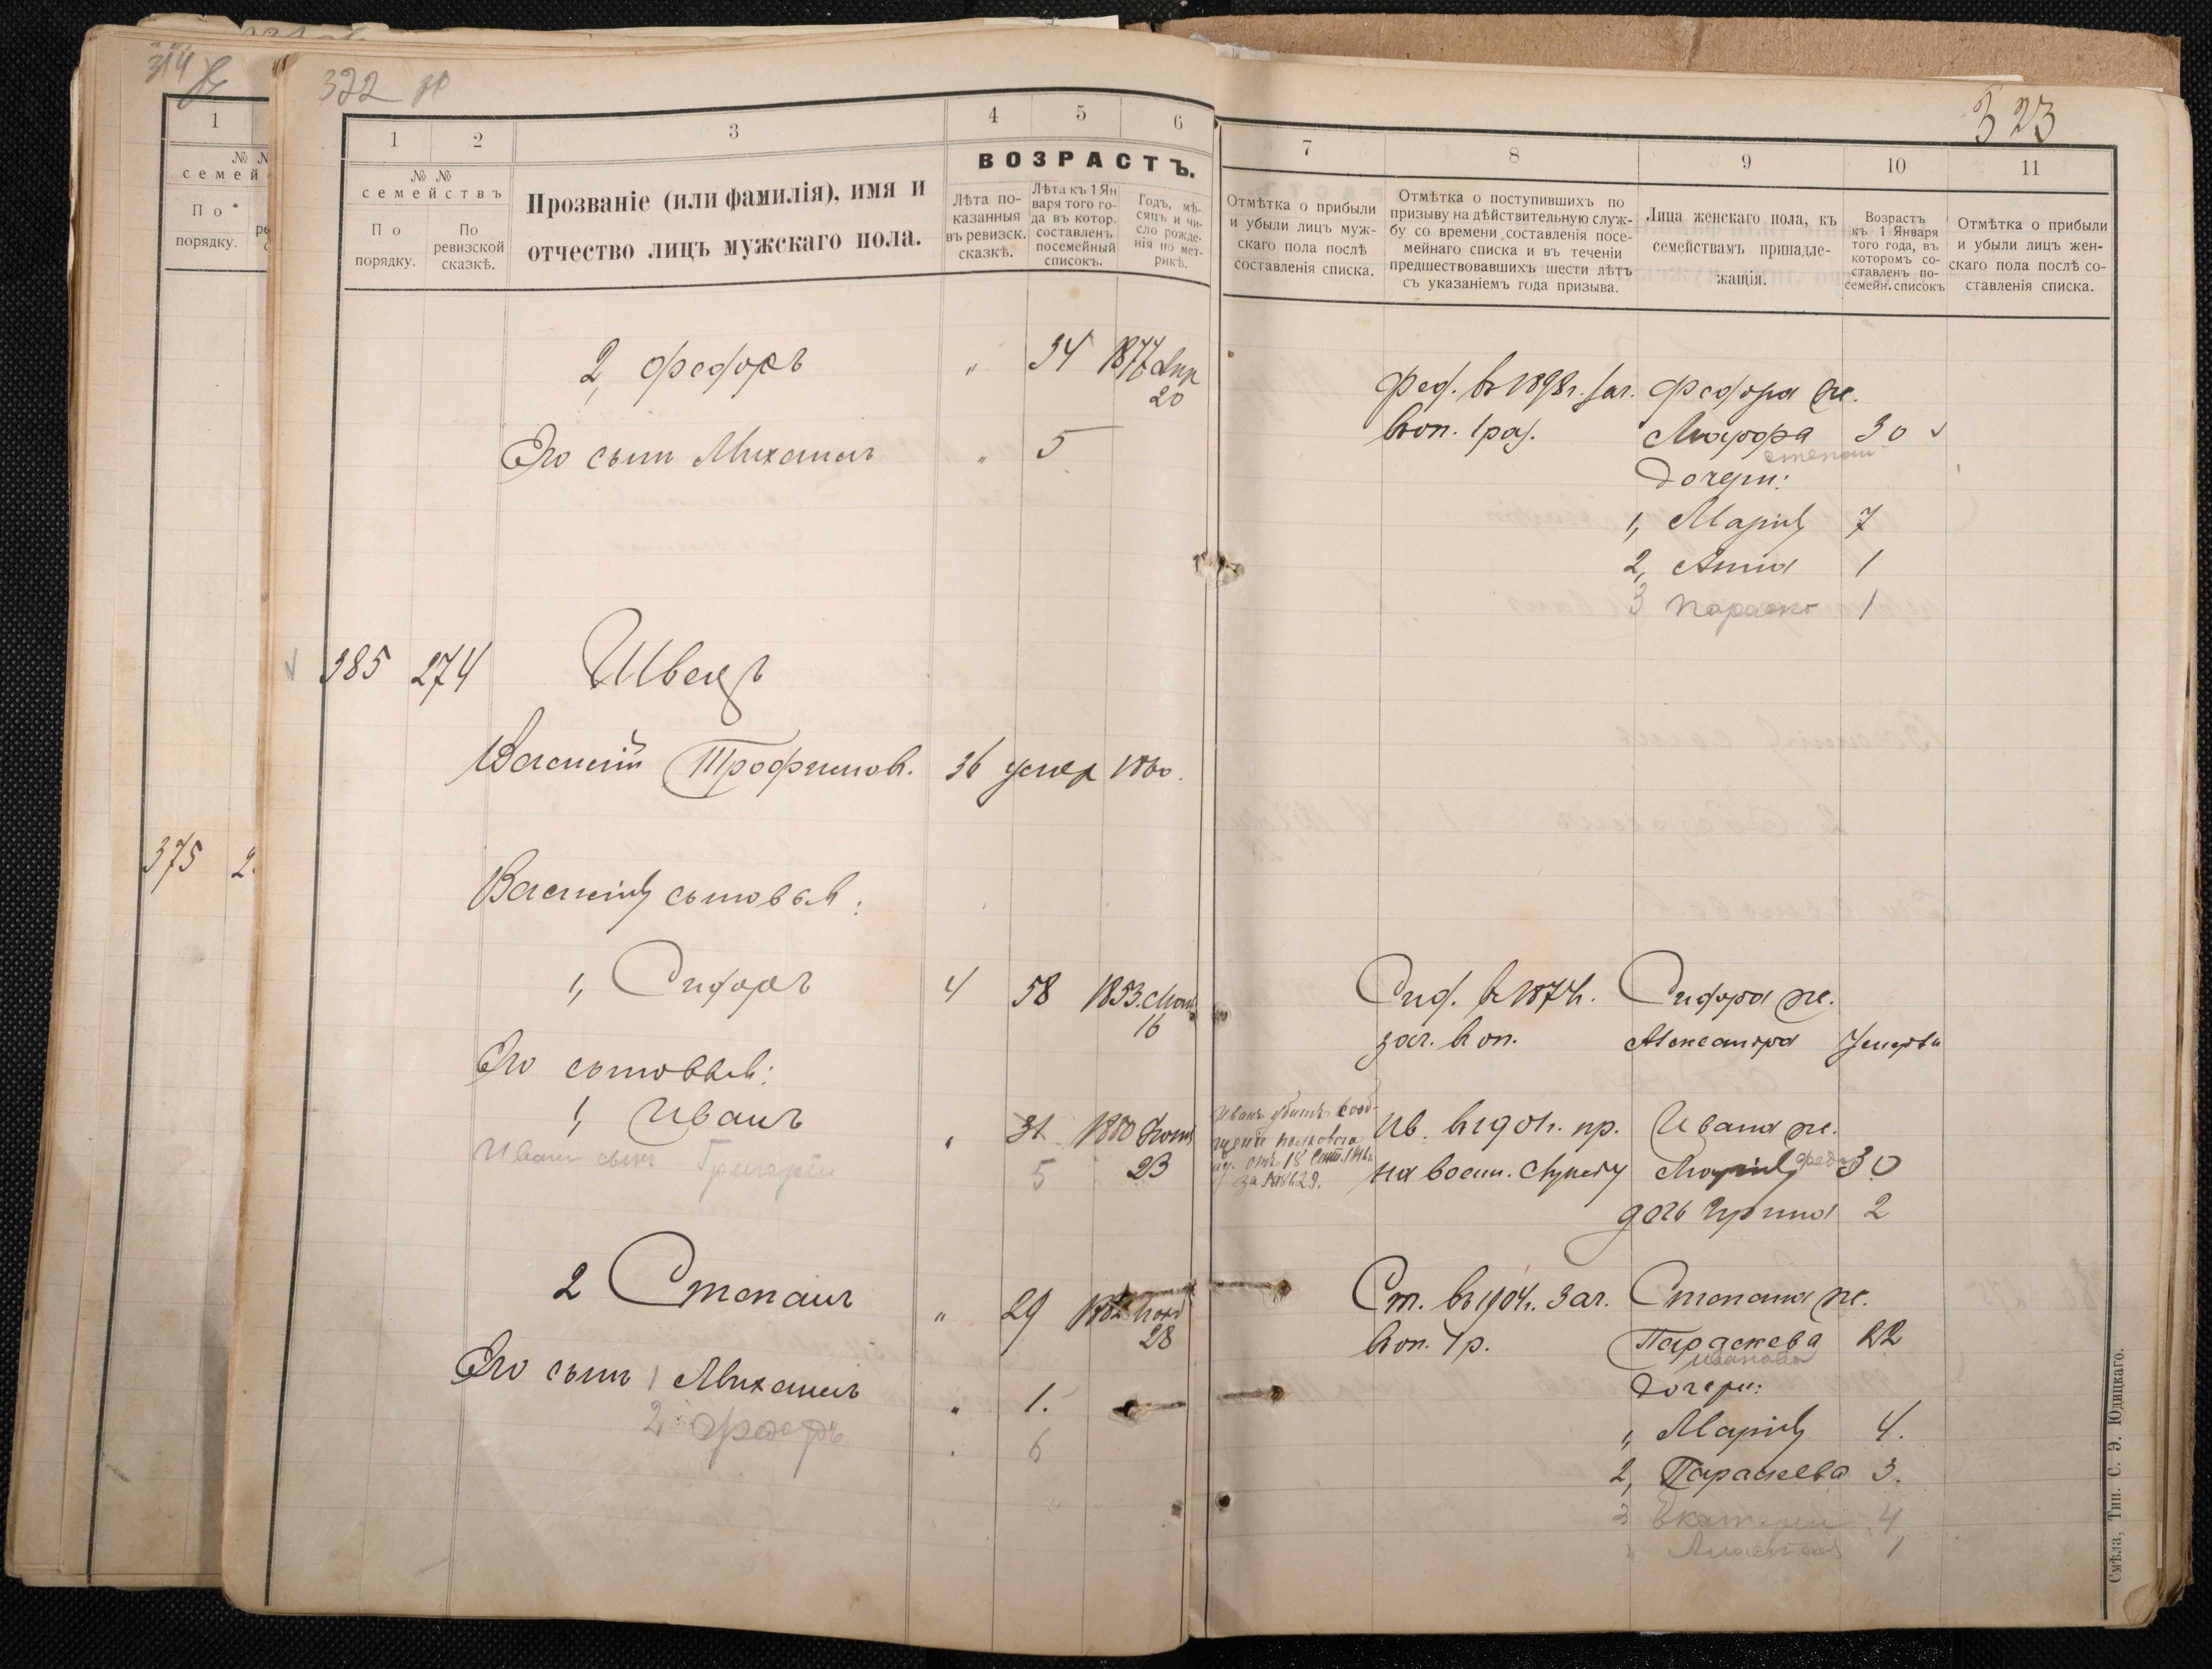 314
1
№ №
семей
По
порядку.
375 2
322
1 2 3 4 5 6
№ №
семействъ
По
порядку.
По
ревизской
сказкѣ.
Прозваніе (или фамилія), имя и
отчество лицъ мужскаго пола.
ВОЗРАСТЪ.
Лѣта по-
казанныя
въ ревизск.
сказкѣ.
Лѣта къ 1 Ян
варя того го-
да въ котор.
составленъ
посемейный
списокъ.
Годъ, мѣ-
сяцъ и чи-
сло рожде-
нія по мет-
рикѣ.
2, Федоръ " 34 1876 Апр
20
Его сынъ Михаилъ " 5
385 274 Швецъ
Василій Трофимов. 36 умер 1860.
Василія сыновья:
1, Сидоръ 4 58 1853
16
Его сыновья:
1, Иванъ 31 1880
23
Ивана сынъ Григорій 5
2 Степанъ " 29 1882
28
Его сынъ 1 Михаилъ " 1.
2 Федоръ 6
323
7 8 9 10 11
Отмѣтка о прибыли
и убыли лицъ муж-
скаго пола послѣ
составленія списка.
Отмѣтка о поступившихъ по
призыву на дѣйствительную служ-
бу со времени составленія посе-
мейнаго списка и въ теченіи
предшествовавшихъ шести лѣтъ
съ указаніемъ года призыва.
Лица женскаго пола, къ
семействамъ принадле-
жащія.
Возрастъ
къ 1 Января
того года, въ
которомъ со-
ставленъ по-
семейн. списокъ
Отмѣтка о прибыли
и убыли лицъ жен-
скаго пола послѣ со-
ставленія списка.
Фед. въ 1898г. зач. Федора ж.
въ оп. 1 раз. 30
Дочери:
1, Марія 7
2, Анна 1
3 Параск 1
Сид. в 1874г. Сидора ж.
зач. в оп. Александра Умерла
Иванъ убитъ сооб-
щеніе
отъ 18 Сент.
за №
Ив. в 1901г. пр. Ивана ж.
на воен. службу Марія 30
дочь Ирина 2
Ст. въ 1904г. зач. Степана ж.
в оп. 1 р. Параскева 22
Иванова
Дочери:
1, Марія 4.
2, Параскева 3.
3 Екатерин 4
Анастас 1
Смѣла, Тип. С. Э. Юдицкаго.